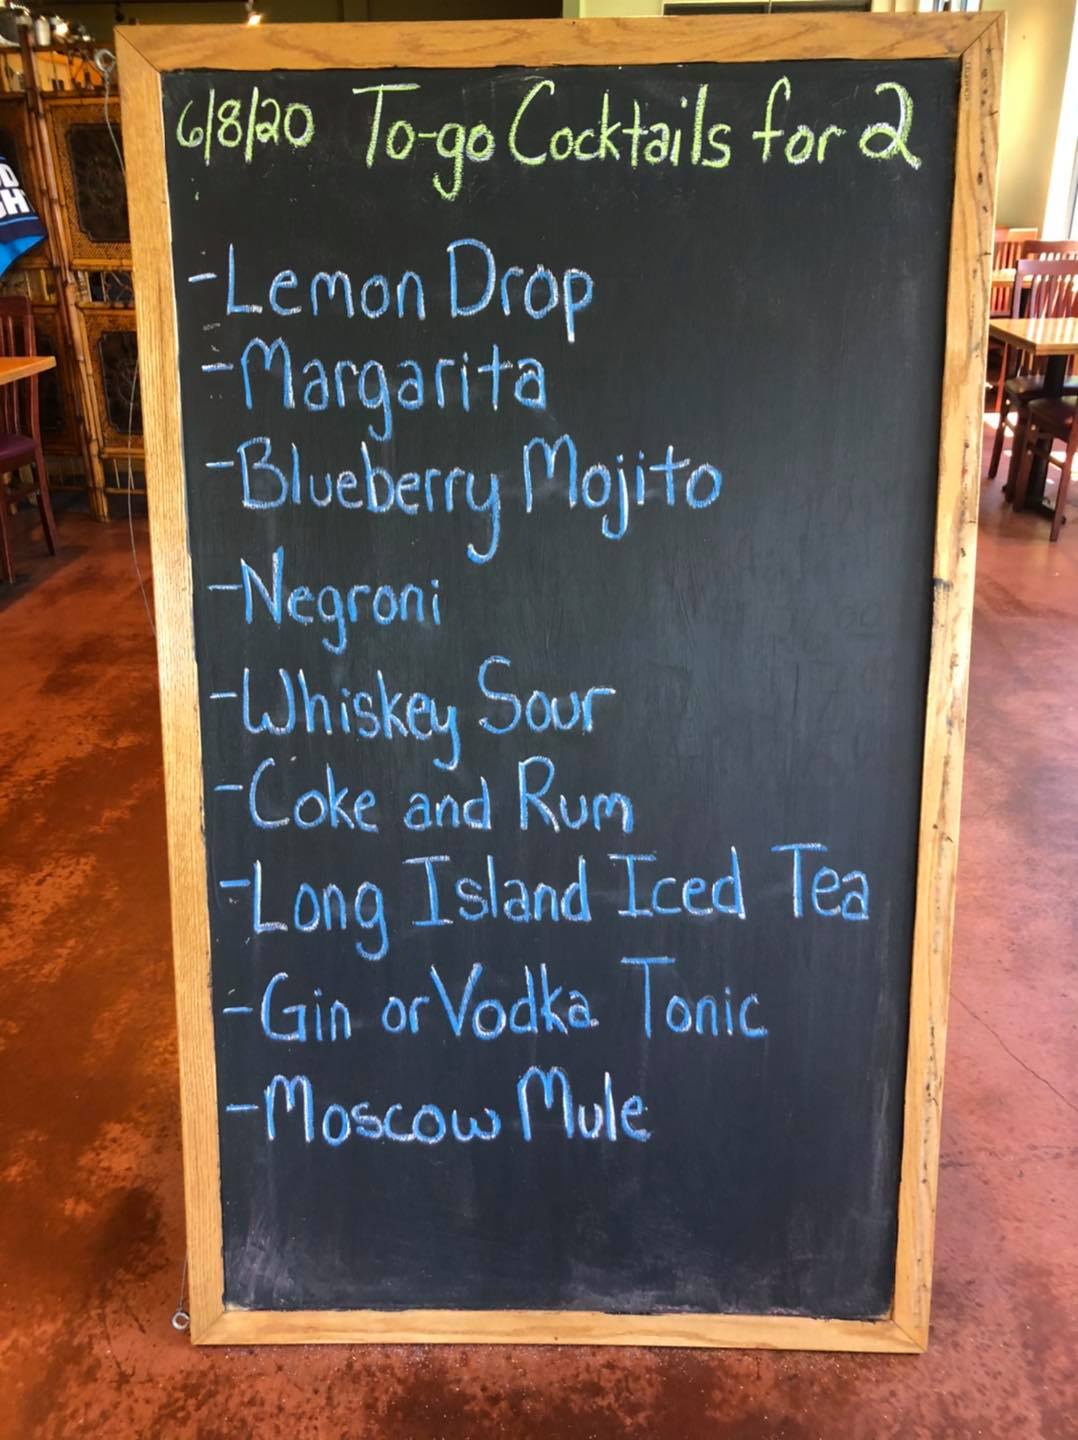 6/8/20 To-go Cocktails for 2
-Lemon Drop
-Margarita
-Blueberry Mojito
-Negroni
-Whiskey Sour
-Coke and Rum
-Long Island Iced Tea
-Gin or Vodka Tonic
-Moscow Mule